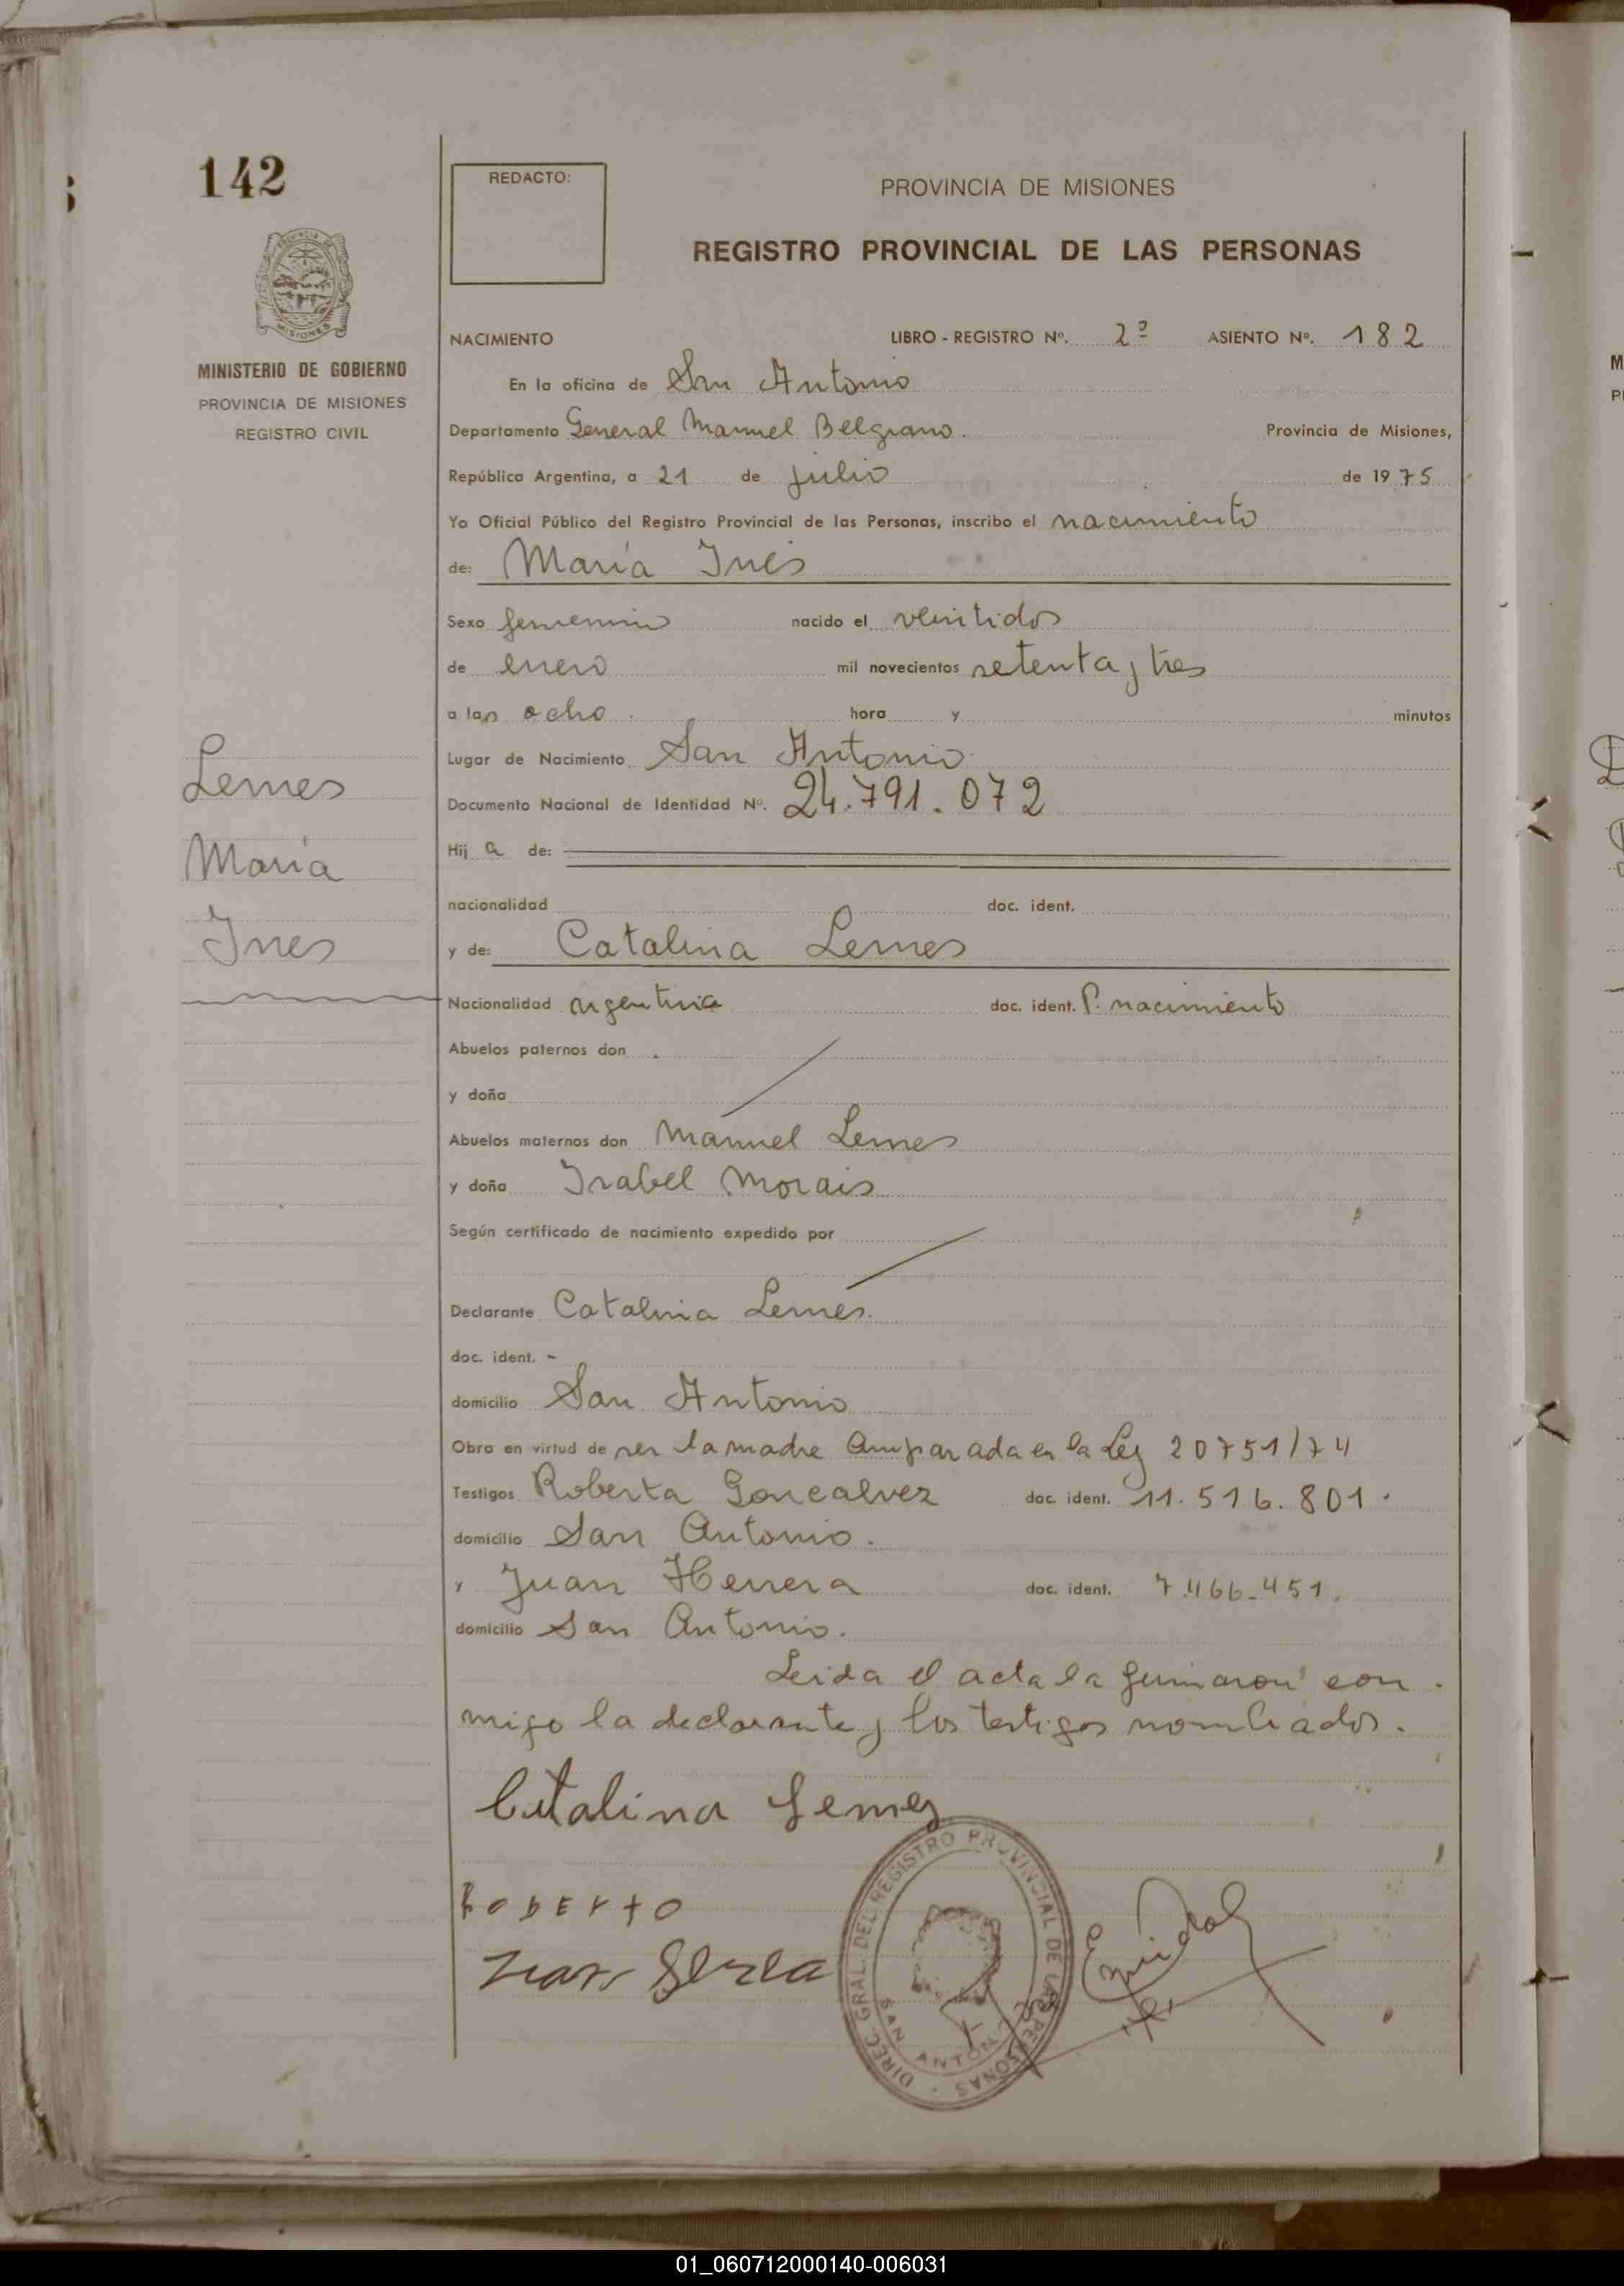 142
REDACTO:
PROVINCIA DE MISIONES
REGISTRO PROVINCIAL DE LAS PERSONAS
MINISTERIO DE GOBIERNO
PROVINCIA DE MISIONES
REGISTRO CIVIL
NACIMIENTO LIBRO - REGISTRO Nº. 2º ASIENTO Nº. 182
En la oficina de San Antonio
Departamento General Manuel Belgrano. Provincia de Misiones,
República Argentina, a 21 de julio de 1975
Yo Oficial Público del Registro Provincial de las Personas, inscribo el nacimiento
de: María Inés
Sexo femenino nacido el veintidos
de enero mil novecientos setenta y tres
a las ocho. hora y minutos
Lugar de Nacimiento San Antonio
Documento Nacional de Identidad Nº. 24.791.072
Hija de:
nacionalidad doc. ident.
y de: Catalina Lemes
Nacionalidad argentina doc. ident. P. nacimiento
Lemes
María
Ines
Abuelos paternos don
y doña
Abuelos maternos don Manuel Lemes
y doña Isabel Morais
Según certificado de nacimiento expedido por
Declarante Catalina Lemes.
doc. ident. -
domicilio San Antonio
Obra en virtud de ser la madre Amparada en la Ley 20751/74
Testigos Roberta Goncalvez doc. ident. 11.516.801.
domicilio San Antonio.
y Juan Herrera doc. ident. 7.466.451.
domicilio San Antonio.
Leida el acta la firmaron con
migo la declarante y los testigos nombrados.
Catalina Lemes
ROBERTO
DIREC. GRAL. DEL REGISTRO PROVINCIAL DE LAS PERSONAS
SAN ANTONIO
01_060712000140-006031